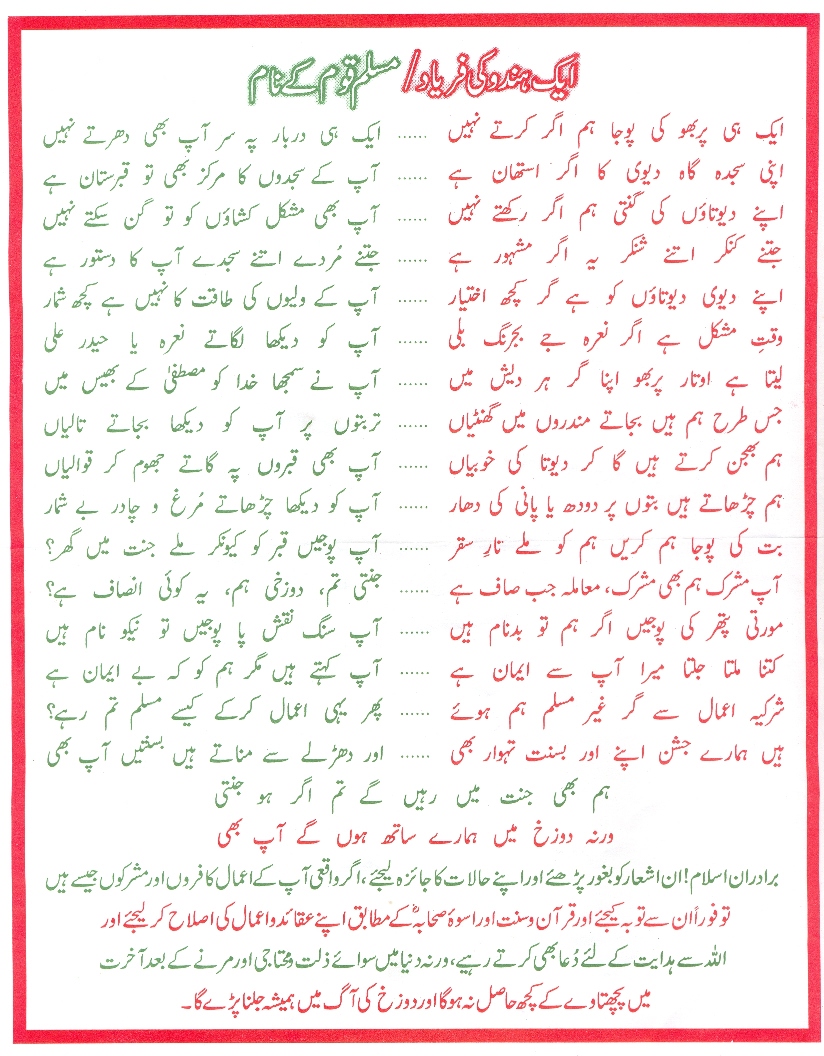 ایک ہندو کی فریاد / مسلم قوم کے نام
ایک ہی پربھو کی پوجا ہم اگر کرتے نہیں ...... ایک ہی دربار پہ سر آپ بھی دھرتے نہیں
اپنی سجدہ گاہ دیوی کا اگر استھان ہے ...... آپ کے سجدوں کا مرکز بھی تو قبرستان ہے
اپنے دیوتاؤں کی گنتی ہم اگر رکھتے نہیں ...... آپ بھی مشکل کشاؤں کو تو گن سکتے نہیں
جتنے کنکر اتنے شنکر یہ اگر مشہور ہے ...... جتنے مُردے اتنے سجدے آپ کا دستور ہے
اپنے دیوی دیوتاؤں کو ہے گر کچھ اختیار ...... آپ کے ولیوں کی طاقت کا نہیں ہے کچھ شمار
وقتِ مشکل ہے اگر نعرہ جے بجرنگ بلی ...... آپ کو دیکھا لگاتے نعرہ یا حیدر علی
لیتا ہے اوتار پربھو اپنا گر ہر دیش میں ...... آپ نے سمجھا خدا کو مصطفیٰ کے بھیس میں
جس طرح ہم ہیں بجاتے مندروں میں گھنٹیاں ...... تربتوں پر آپ کو دیکھا بجاتے تالیاں
ہم بھجن کرتے ہیں گا کر دیوتا کی خوبیاں ...... آپ بھی قبروں پہ گاتے جھوم کر قوالیاں
ہم چڑھاتے ہیں بتوں پر دودھ یا پانی کی دھار ...... آپ کو دیکھا چڑھاتے مُرغ و چادر بے شمار
بت کی پوجا ہم کریں ہم کو ملے نارِ سقر ...... آپ پوجیں قبر کو کیونکر ملے جنت میں گھر؟
آپ مشرک ہم بھی مشرک، معاملہ جب صاف ہے ...... جنتی تم، دوزخی ہم، یہ کوئی انصاف ہے؟
مورتی پتھر کی پوجیں اگر ہم تو بدنام ہیں ...... آپ سنگ نقش پا پوجیں تو نیکو نام ہیں
کتنا ملتا جلتا میرا آپ سے ایمان ہے ...... آپ کہتے ہیں مگر ہم کو کہ بے ایمان ہے
شرکیہ اعمال سے گر غیر مسلم ہم ہوئے ...... پھر یہی اعمال کرکے کیسے مسلم تم رہے؟
ہیں ہمارے جشن اپنے اور بسنت تہوار بھی ...... اور دھڑلے سے مناتے ہیں بسنتیں آپ بھی
ہم بھی جنت میں رہیں گے تم اگر ہو جنتی
ورنہ دوزخ میں ہمارے ساتھ ہوں گے آپ بھی
برادران اسلام! ان اشعار کو بغور پڑھئے اور اپنے حالات کا جائزہ لیجئے، اگر واقعی آپ کے اعمال کافروں اور مشرکوں جیسے ہیں
تو فوراً ان سے توبہ کیجئے اور قرآن وسنت اور اسوۂ صحابہؓ کے مطابق اپنے عقائد واعمال کی اصلاح کرلیجئے اور
اللہ سے ہدایت کے لئے دُعا بھی کرتے رہیے، ورنہ دنیا میں سوائے ذلت ومحتاجی اور مرنے کے بعد آخرت
میں پچھتاوے کے کچھ حاصل نہ ہوگا اور دوزخ کی آگ میں ہمیشہ جلنا پڑے گا۔